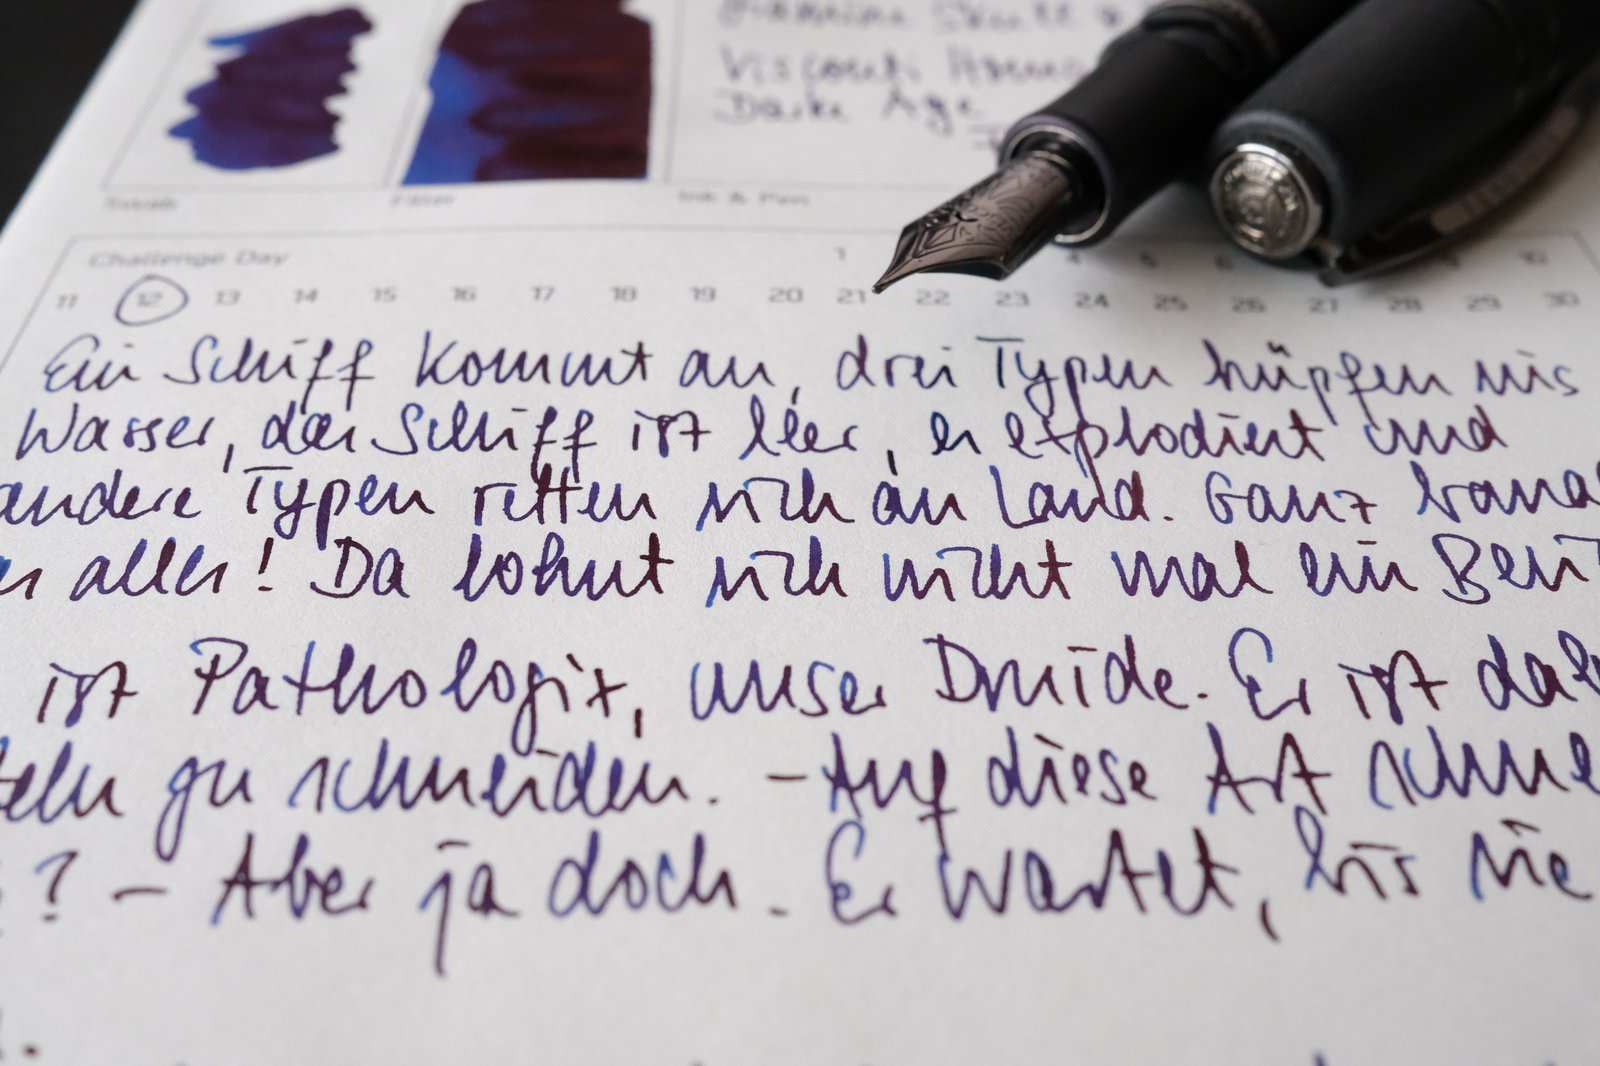 Visconti Homo
Dark Age
Swab
Ink & Pen
Challenge Day
1 4 5 6 9 10
11 12 13 14 15 16 17 18 19 20 21 22 23 24 25 26 27 28 29 30
Ein Schiff kommt an, drei Typen hüpfen ins
Wasser, das Schiff ist leer, es explodiert und
andere Typen retten sich an Land. Ganz banal
alles! Da lohnt sich nicht mal ein
ist Pathologix, unser Druide. Er ist
zu schneiden. – Auf diese Art
? – Aber ja doch. Er wartet, bis sie